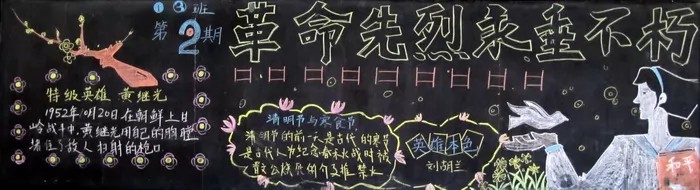 13班
第2期
革命先烈永垂不朽
特级英雄 黄继光
1952年10月20日在朝鲜上甘
岭战斗中,黄继光用自己的胸膛
堵住了敌人扫射的枪口
清明节与寒食节
清明节的前一天是古代的寒食节
是古代人节纪念春秋战时被
英雄本色
刘胡兰
和平